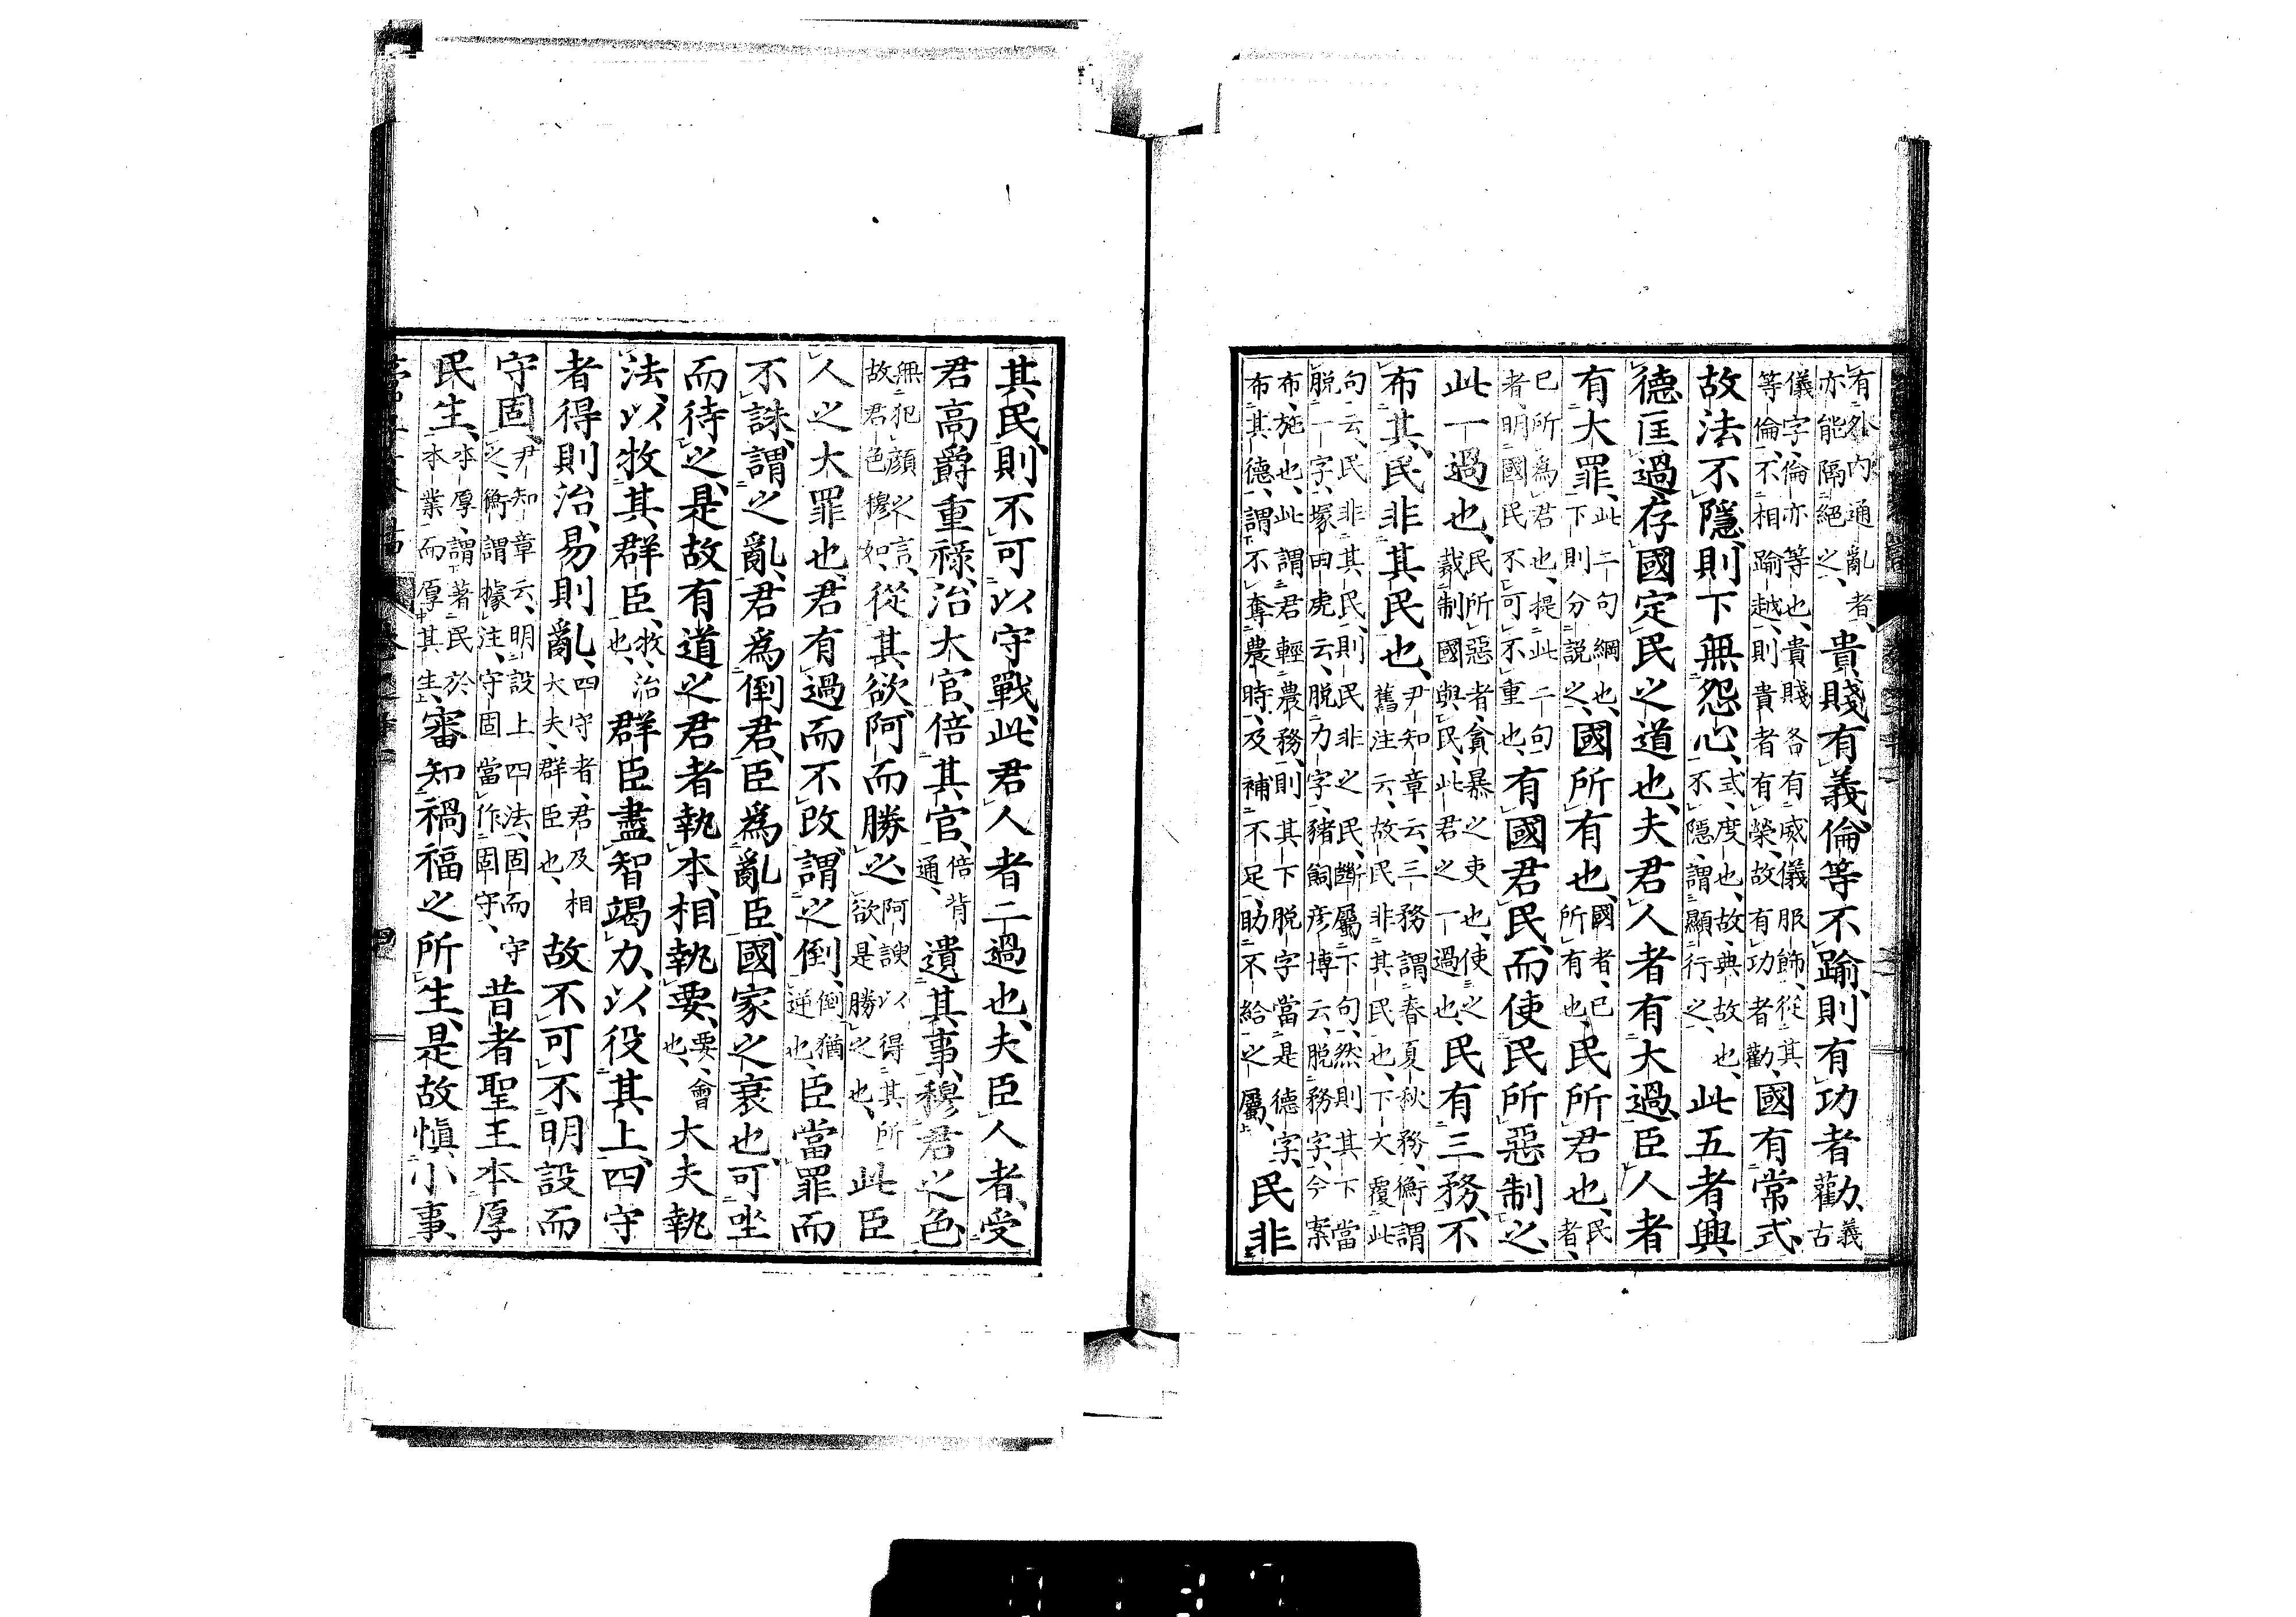 有外内通亂者、亦能隔絕之、貴賤有義倫等不踰則有功者勸、義古
儀字、倫亦等也、貴賤各有威儀服飾、從其等倫不相踰越、則貴者有榮、故有功者勸、國有常式
故法不隱則下無怨心、式、度也、故、典故也、不隱、謂顯行之、此五者興
德匡過存國定民之道也、夫君人者有大過、臣人者
有大罪、此二句綱也、下則分說之、國所有也、國者、己所有也、民所君也、民者、
己所爲君也、提此二句者、明國民不可不重也、有國君民而使民所惡制之、
此一過也、民所惡者、貪暴之吏也、使之裁制國與民、此君之一過也、民有三務、不
布其民非其民也、尹知章云、三務謂春夏秋務、衡謂舊注云、故民非其民也、下文覆此
句云、民非其民、則民非之民、斷屬下句、然則其下當脱一字、塚田虎云、脱力字、豬飼彦博云、脱務字、今案
布、施也、此謂君輕農務、則其下脱字當是德字、布其德、謂不奪農時、及補不足、助不給之屬、民非
其民、則不可以守戰、此君人者二過也、夫臣人者、受
君高爵重祿、治大官、倍其官、倍背通、遺其事、穆君之色、
無犯顔之言、故君色穆如、從其欲、阿而勝之、阿諛以得其所欲、是勝之也、此臣
人之大罪也、君有過而不改、謂之倒、倒、猶逆也、臣當罪而
不誅、謂之亂、君爲倒君、臣爲亂臣、國家之衰也、可坐
而待之、是故有道之君者執本、相執要、要、會也、大夫執
法、以牧其群臣、牧、治也、群臣盡智竭力、以役其上、四守
者得則治、易則亂、四守者、君及相大夫、群臣也、故不可不明設而
守固、尹知章云、明設上四法、固而守之、衡謂據注、守固當作固守、昔者聖王本厚
民生、本厚、謂著民於本業而厚其生、審知禍福之所生、是故愼小事、